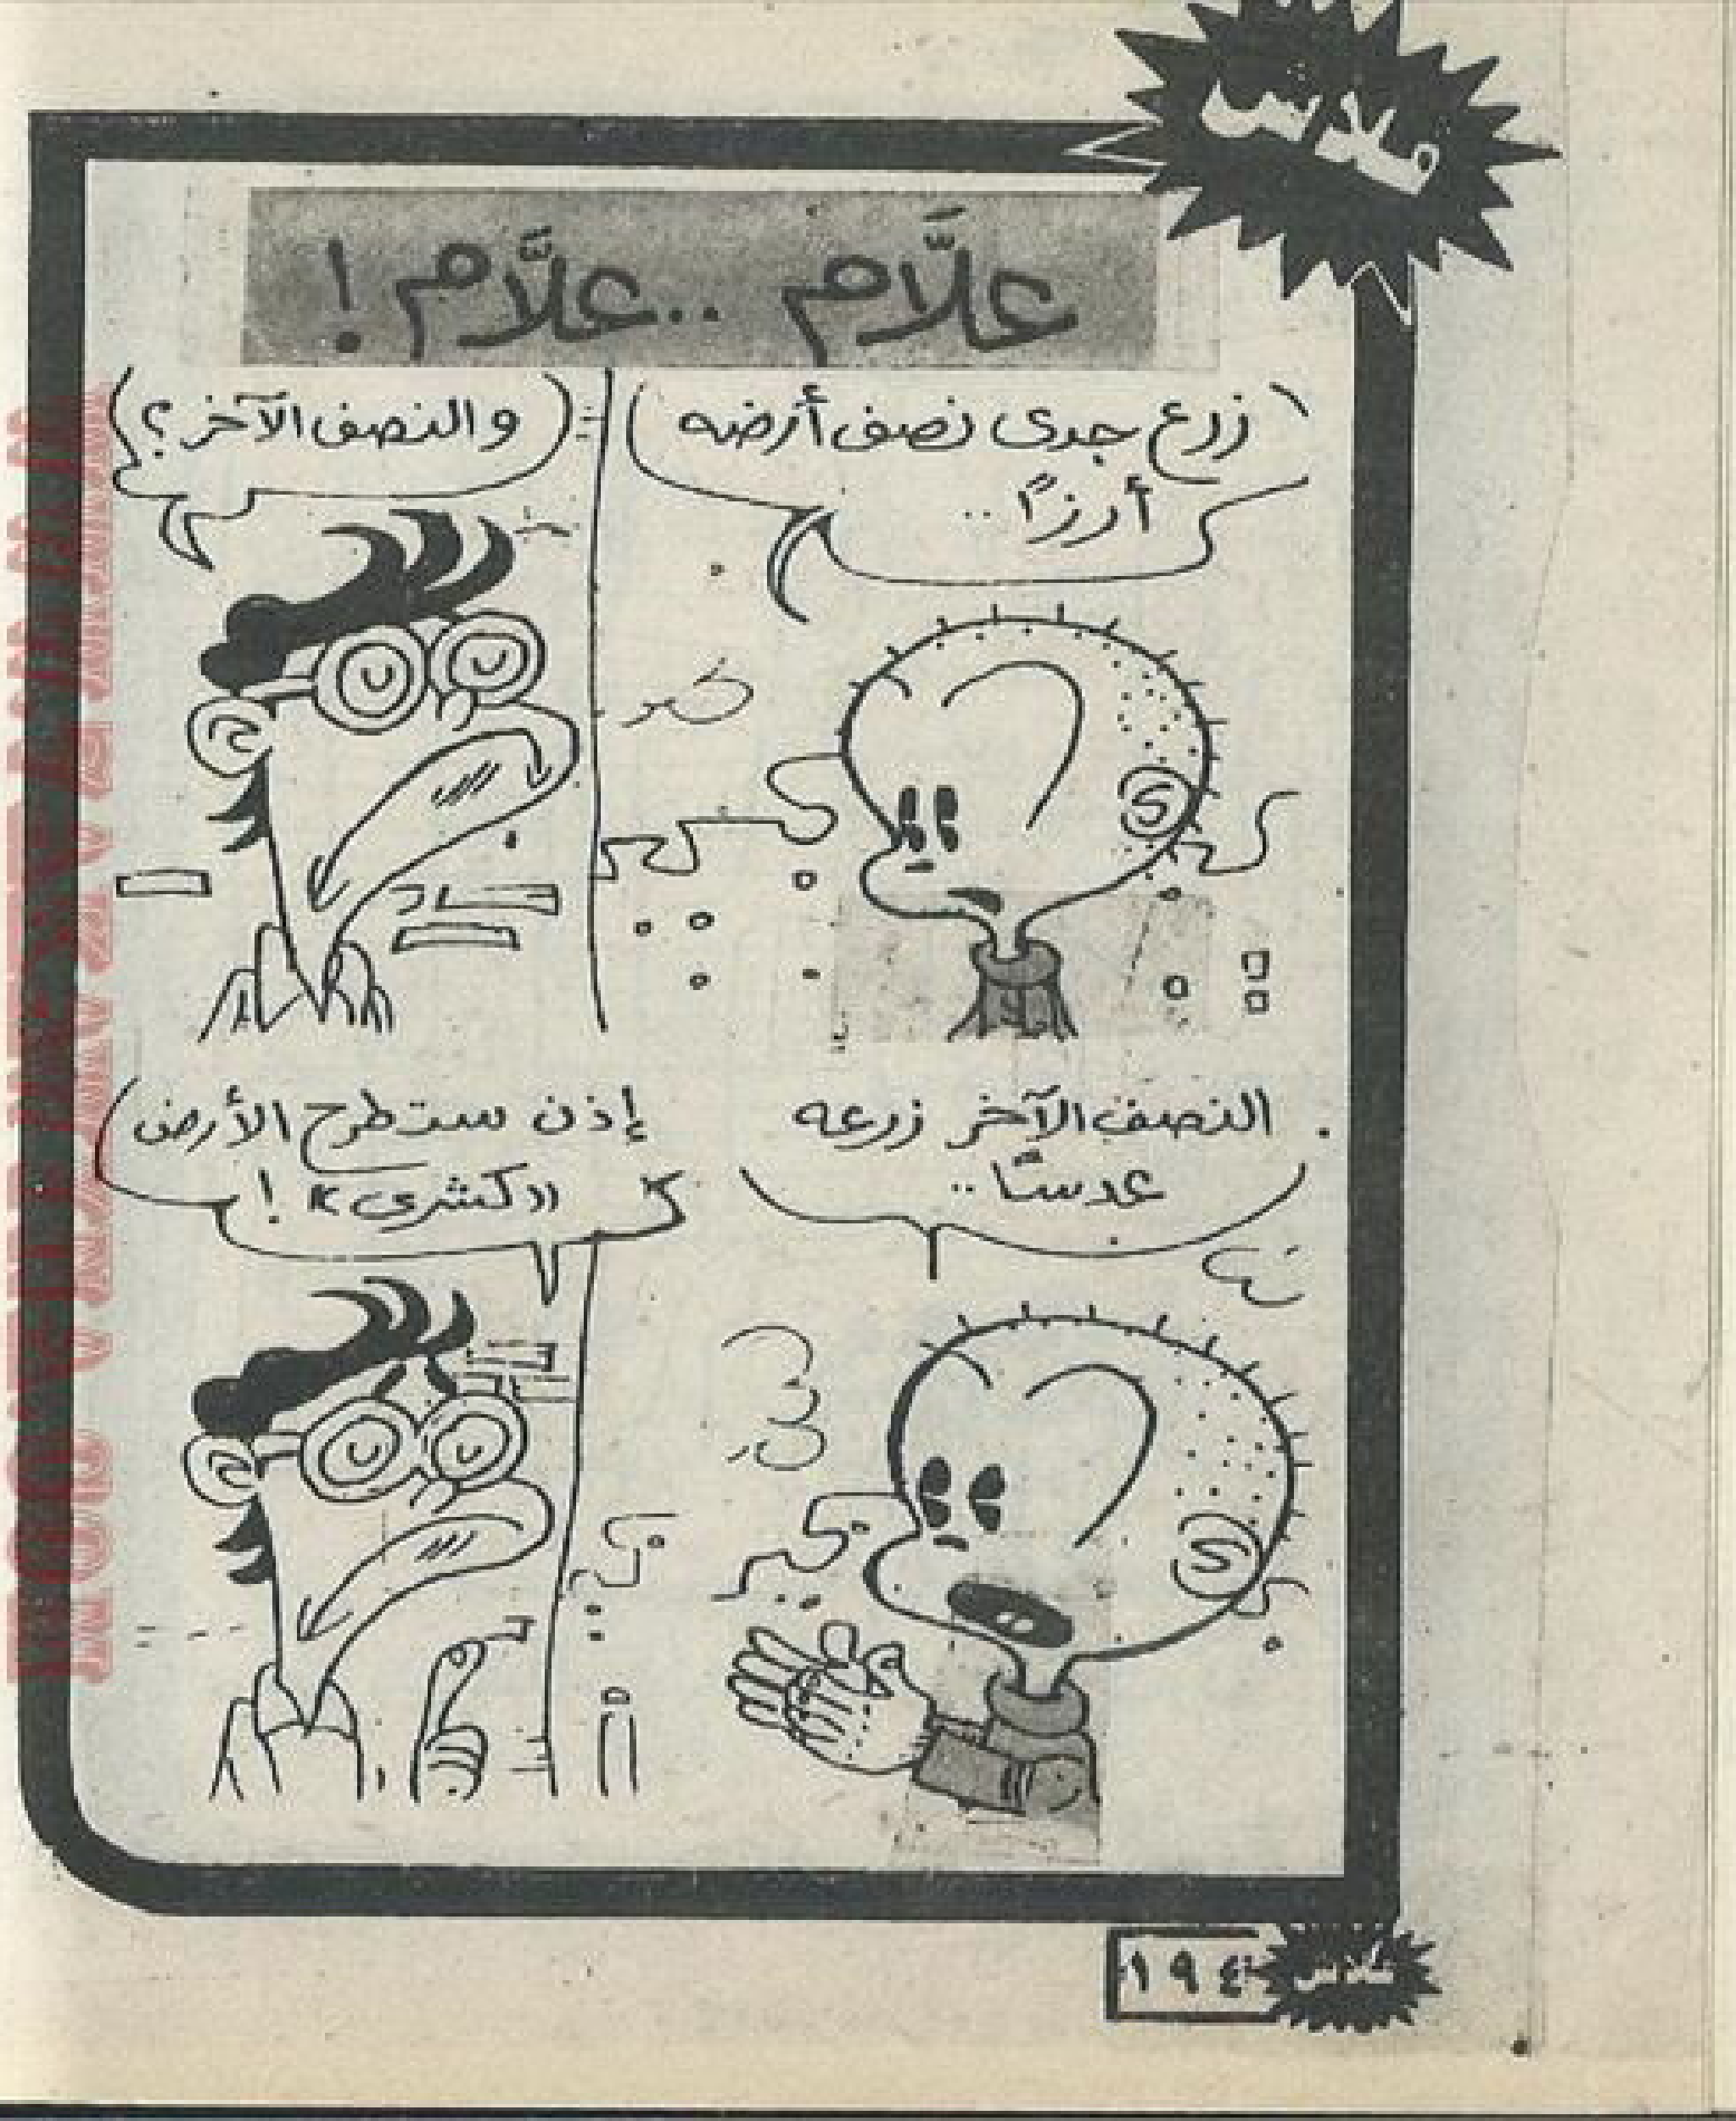 فلاش
علَّام ..علَّام !
زرع جدى نصف أرضه
أرزًا ..
والنصف الآخر ؟
النصف الآخر زرعه
عدسًا ..
إذن ستطرح الأرض
«كشرى» !
١٩٤
فلاش